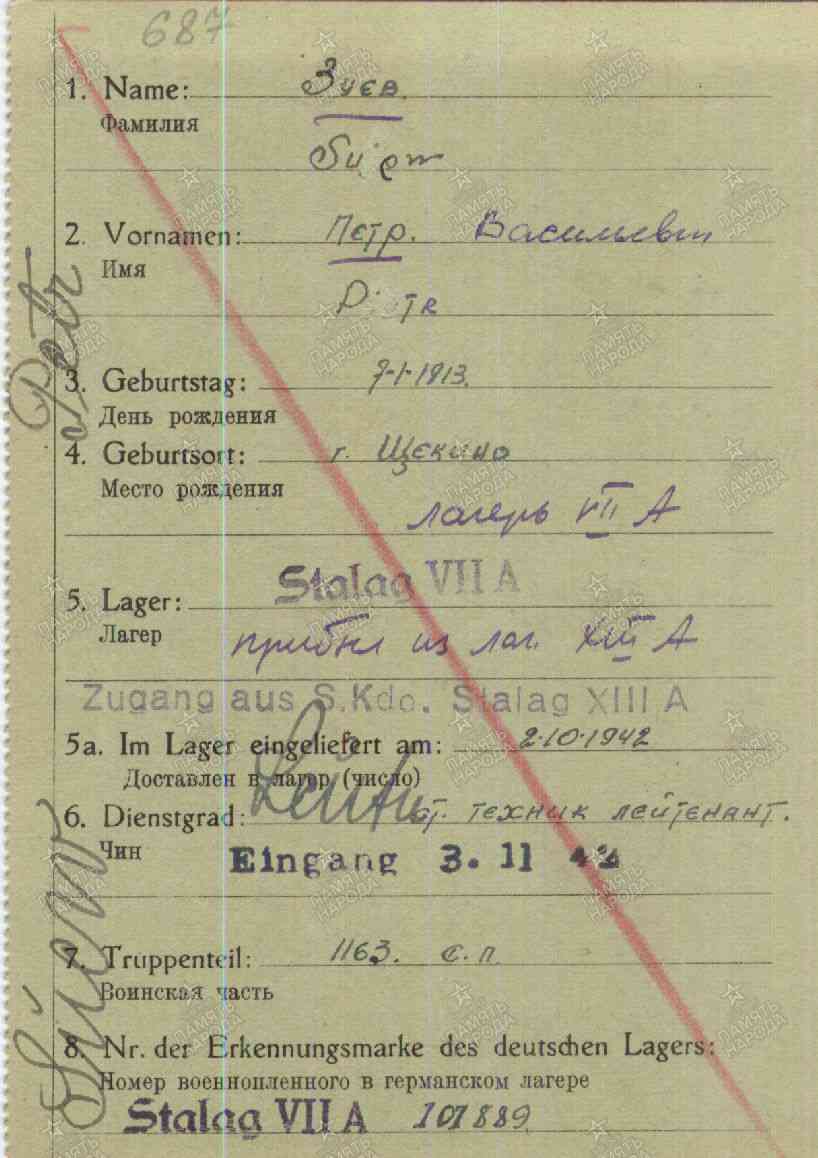 687
1. Name: Зуев
Фамилия
2. Vornamen: Петр. Васильевич
Имя
Petr
3. Geburtstag: 7-1-1913.
День рождения
4. Geburtsort: г. Щекино
Место рождения
лагерь VII A
5. Lager: Stalag VII A
Лагер
прибыл из лаг. XIII A
Zugang aus S.Kdo. Stalag XIII A
5a. Im Lager eingeliefert am: 2-10-1942
Доставлен в лагер (число)
6. Dienstgrad: ст. техник лейтенант.
Чин
Eingang 3. 11 42
7. Truppenteil: 1163. с.п
Воинская часть
8. Nr. der Erkennungsmarke des deutschen Lagers:
Номер военнопленного в германском лагере
Stalag VII A 101889
ПАМЯТЬ НАРОДА